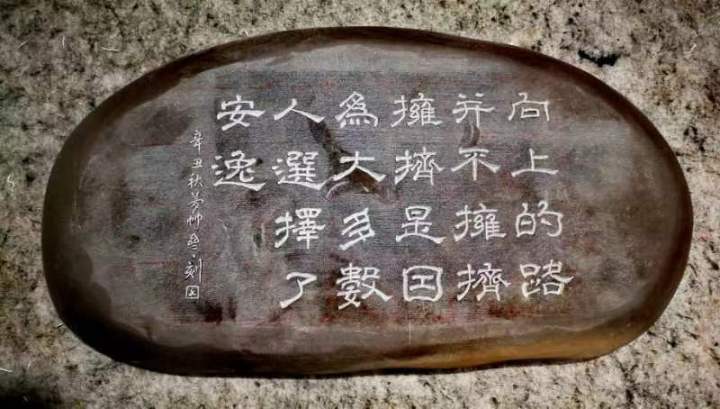 向上的路
并不擁擠
擁擠是因
為大多數
人選擇了
安逸
辛丑秋芳艸堂刻